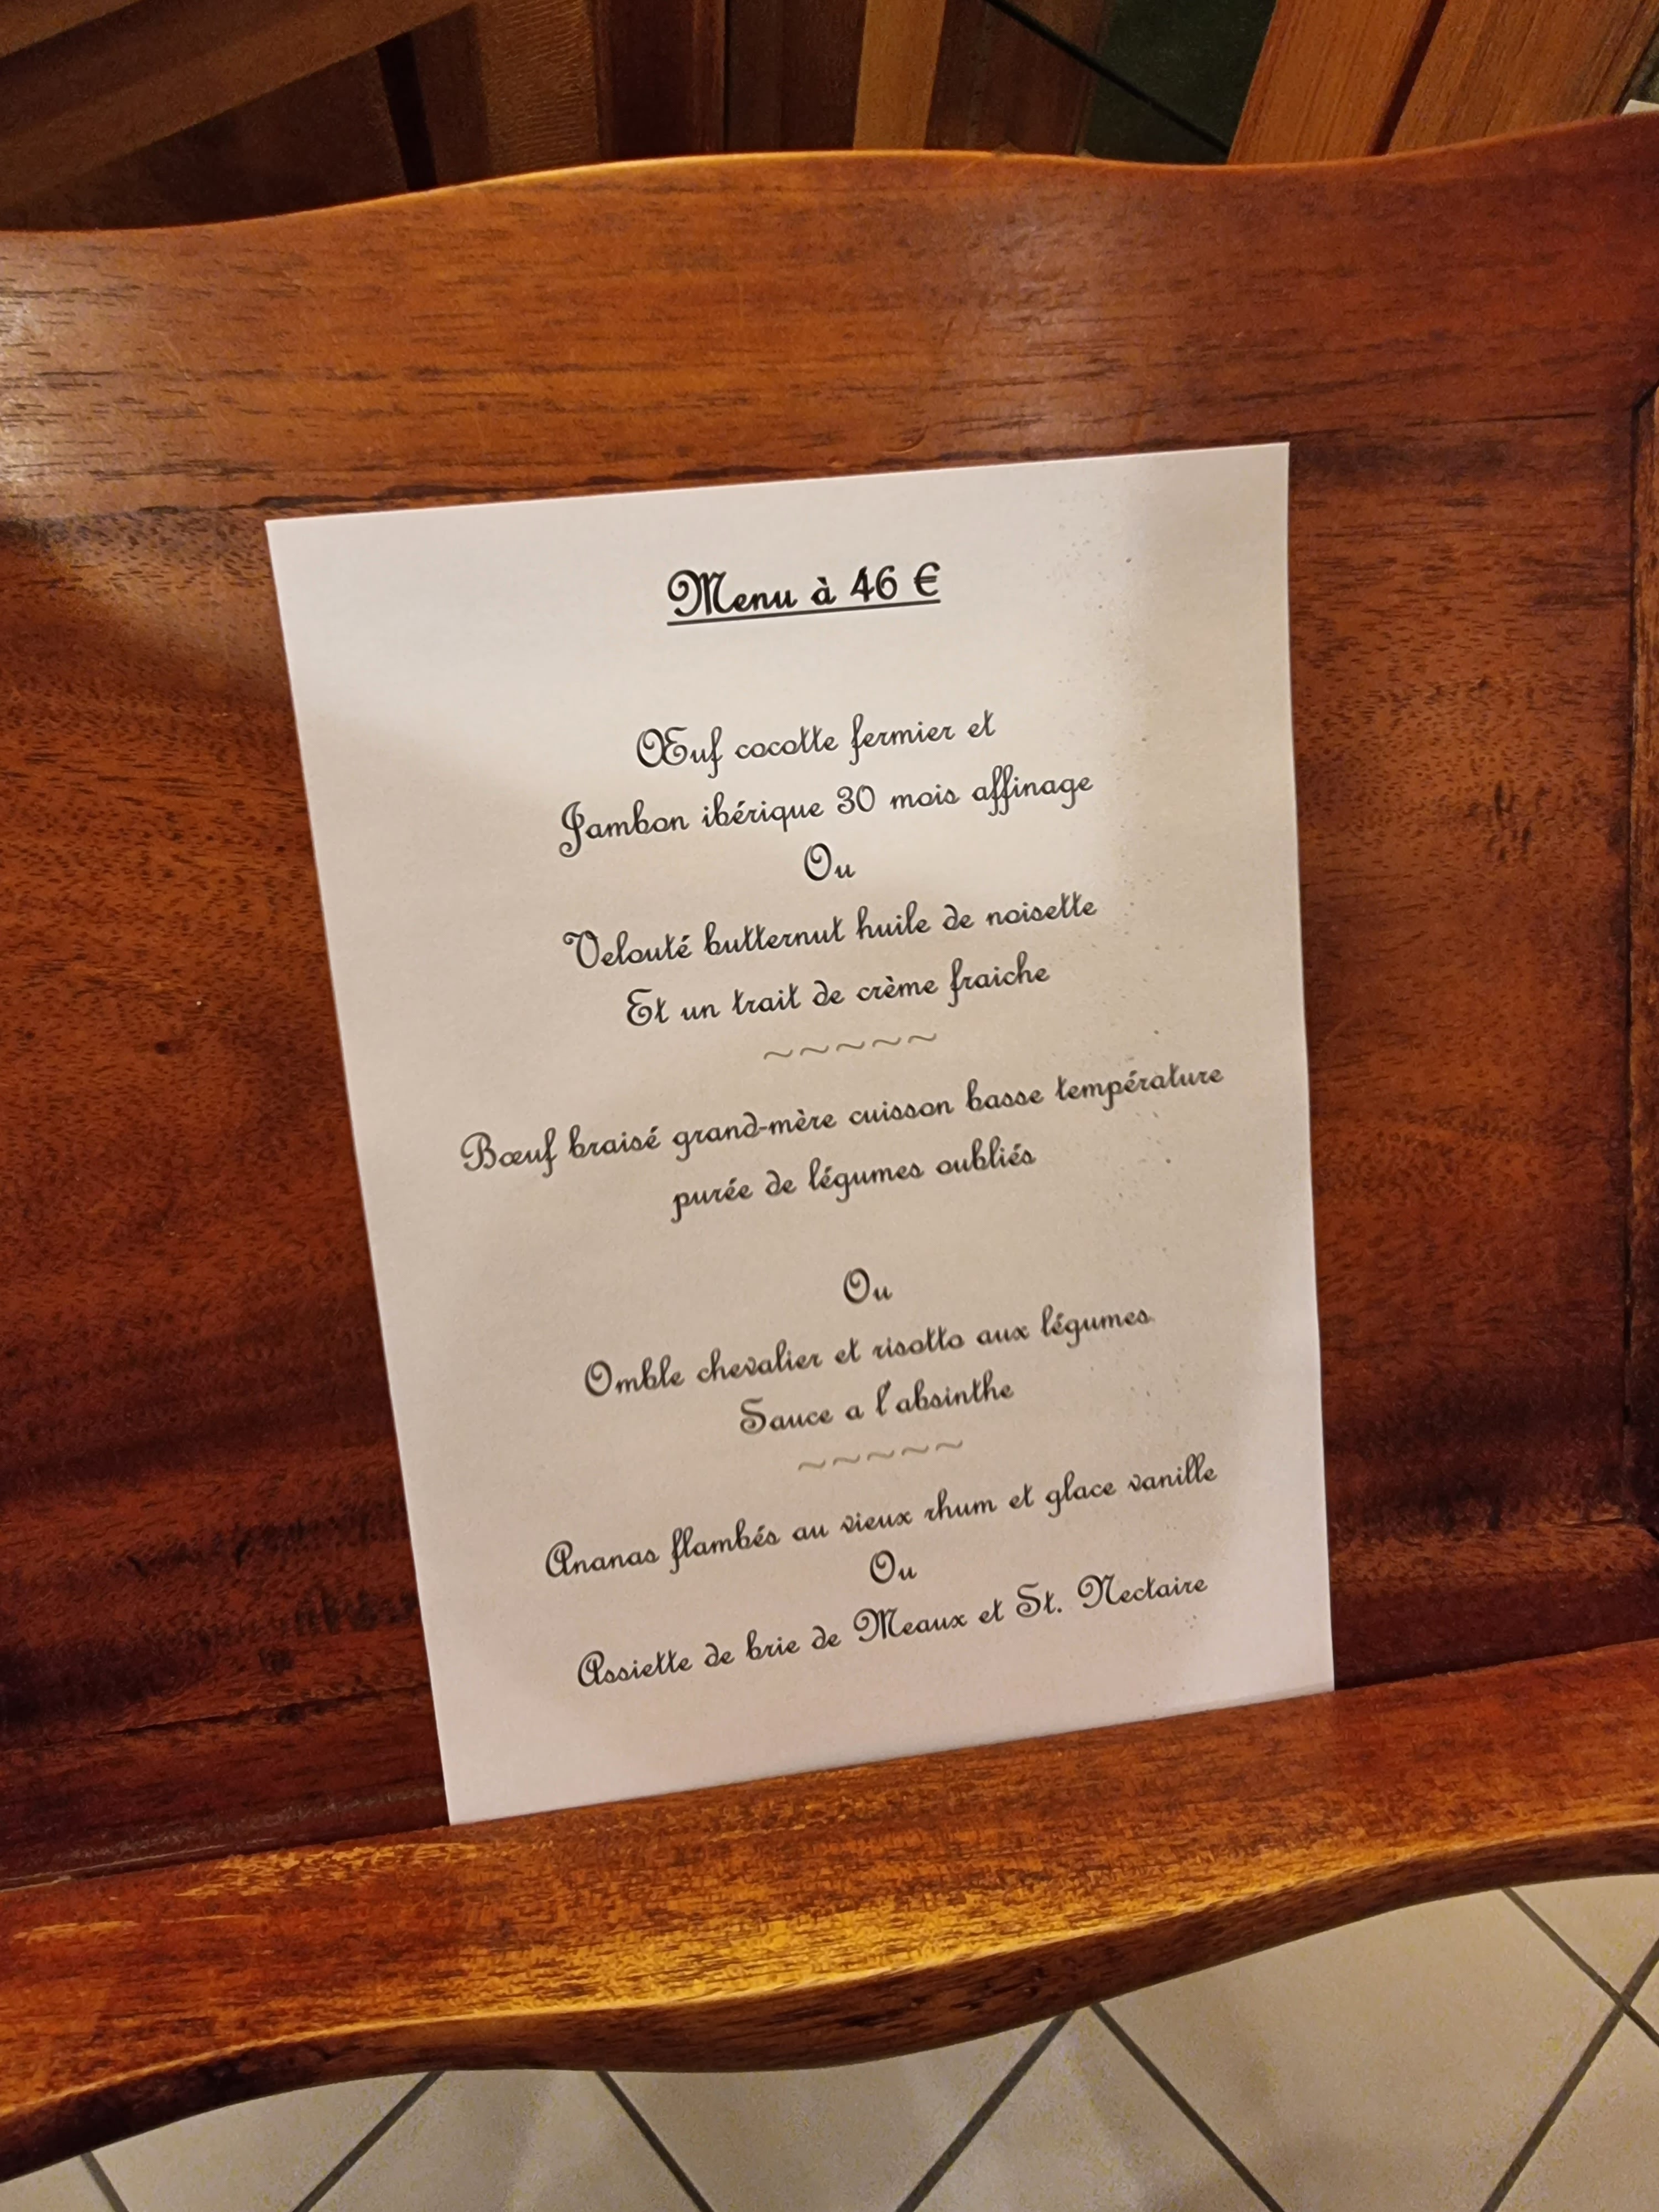 Menu à 46 €
Œuf cocotte fermier et
Jambon ibérique 30 mois affinage
Ou
Velouté butternut huile de noisette
Et un trait de crème fraiche
~~~~~
Bœuf braisé grand-mère cuisson basse température
purée de légumes oubliés
Ou
Omble chevalier et risotto aux légumes
Sauce a l'absinthe
~~~~~
Ananas flambés au vieux rhum et glace vanille
Ou
Assiette de brie de Meaux et St. Nectaire